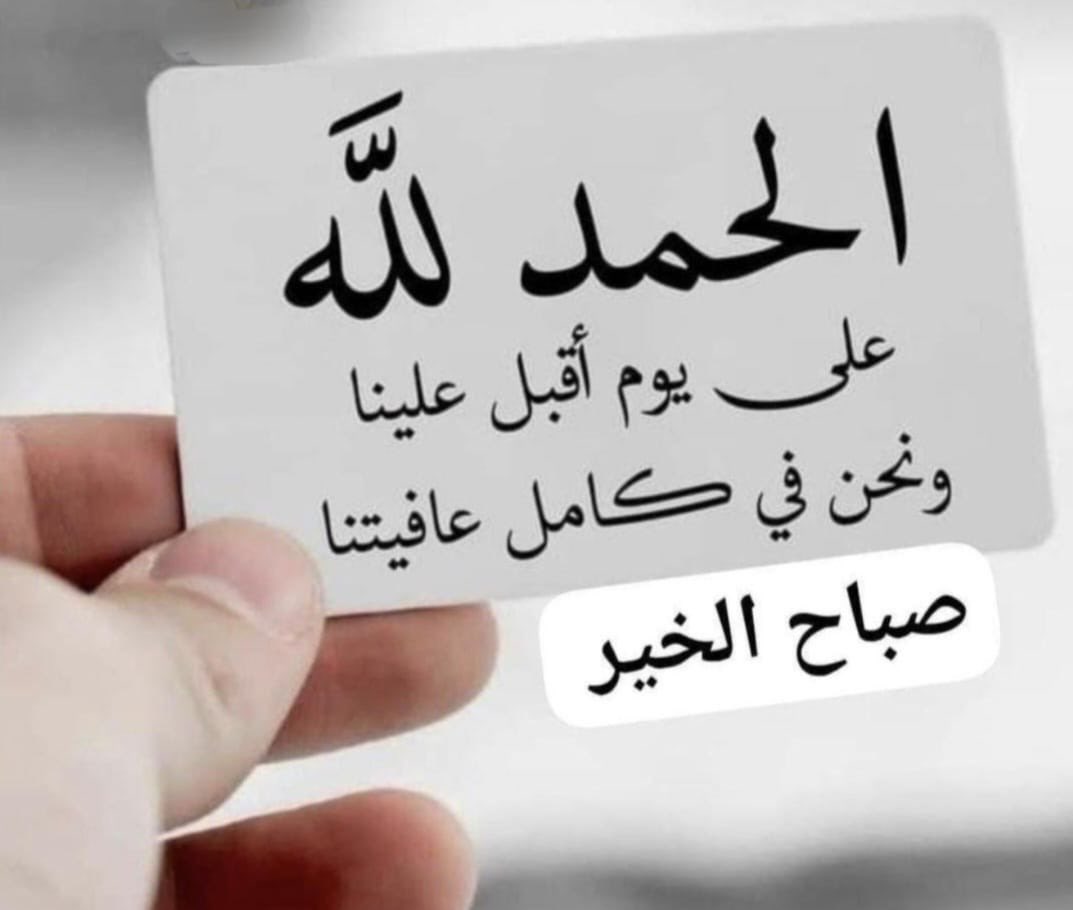 الحمد للَّه
على يوم أقبل علينا
ونحن في كامل عافيتنا
صباح الخير